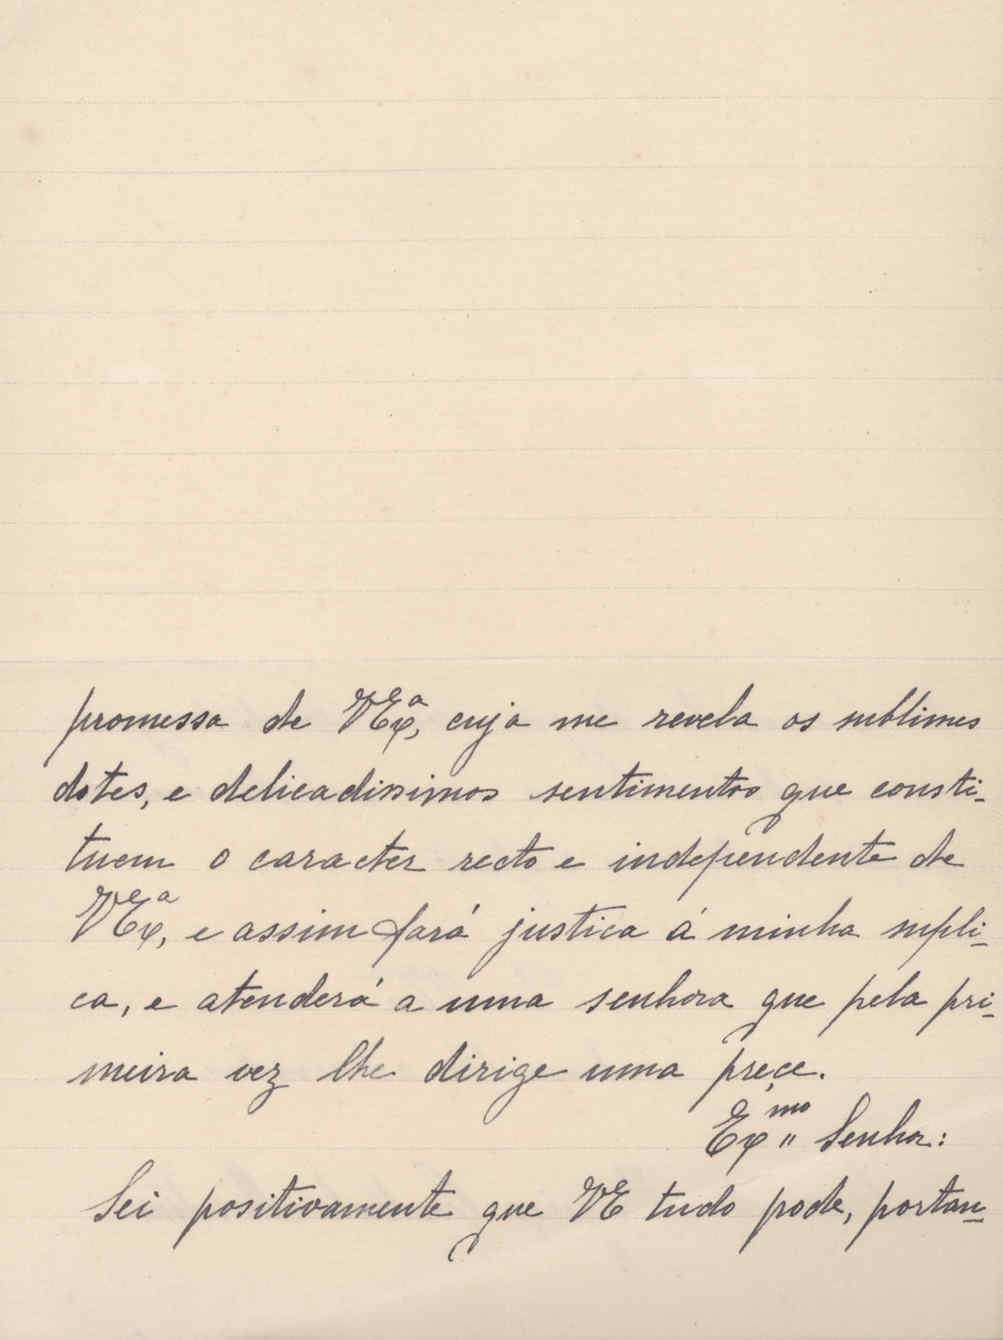 promessa de VExª, cuja me revela os sublimes
dotes, e delicadissimos sentimentos que consti-
tuem o caracter recto e independente de
VExª, e assim fará justica á minha supli-
ca, e atenderá a uma senhora que pela pri-
meira vez lhe dirige uma prece.
Exmo Senhor:
Sei positivamente que VE tudo pode, portan-